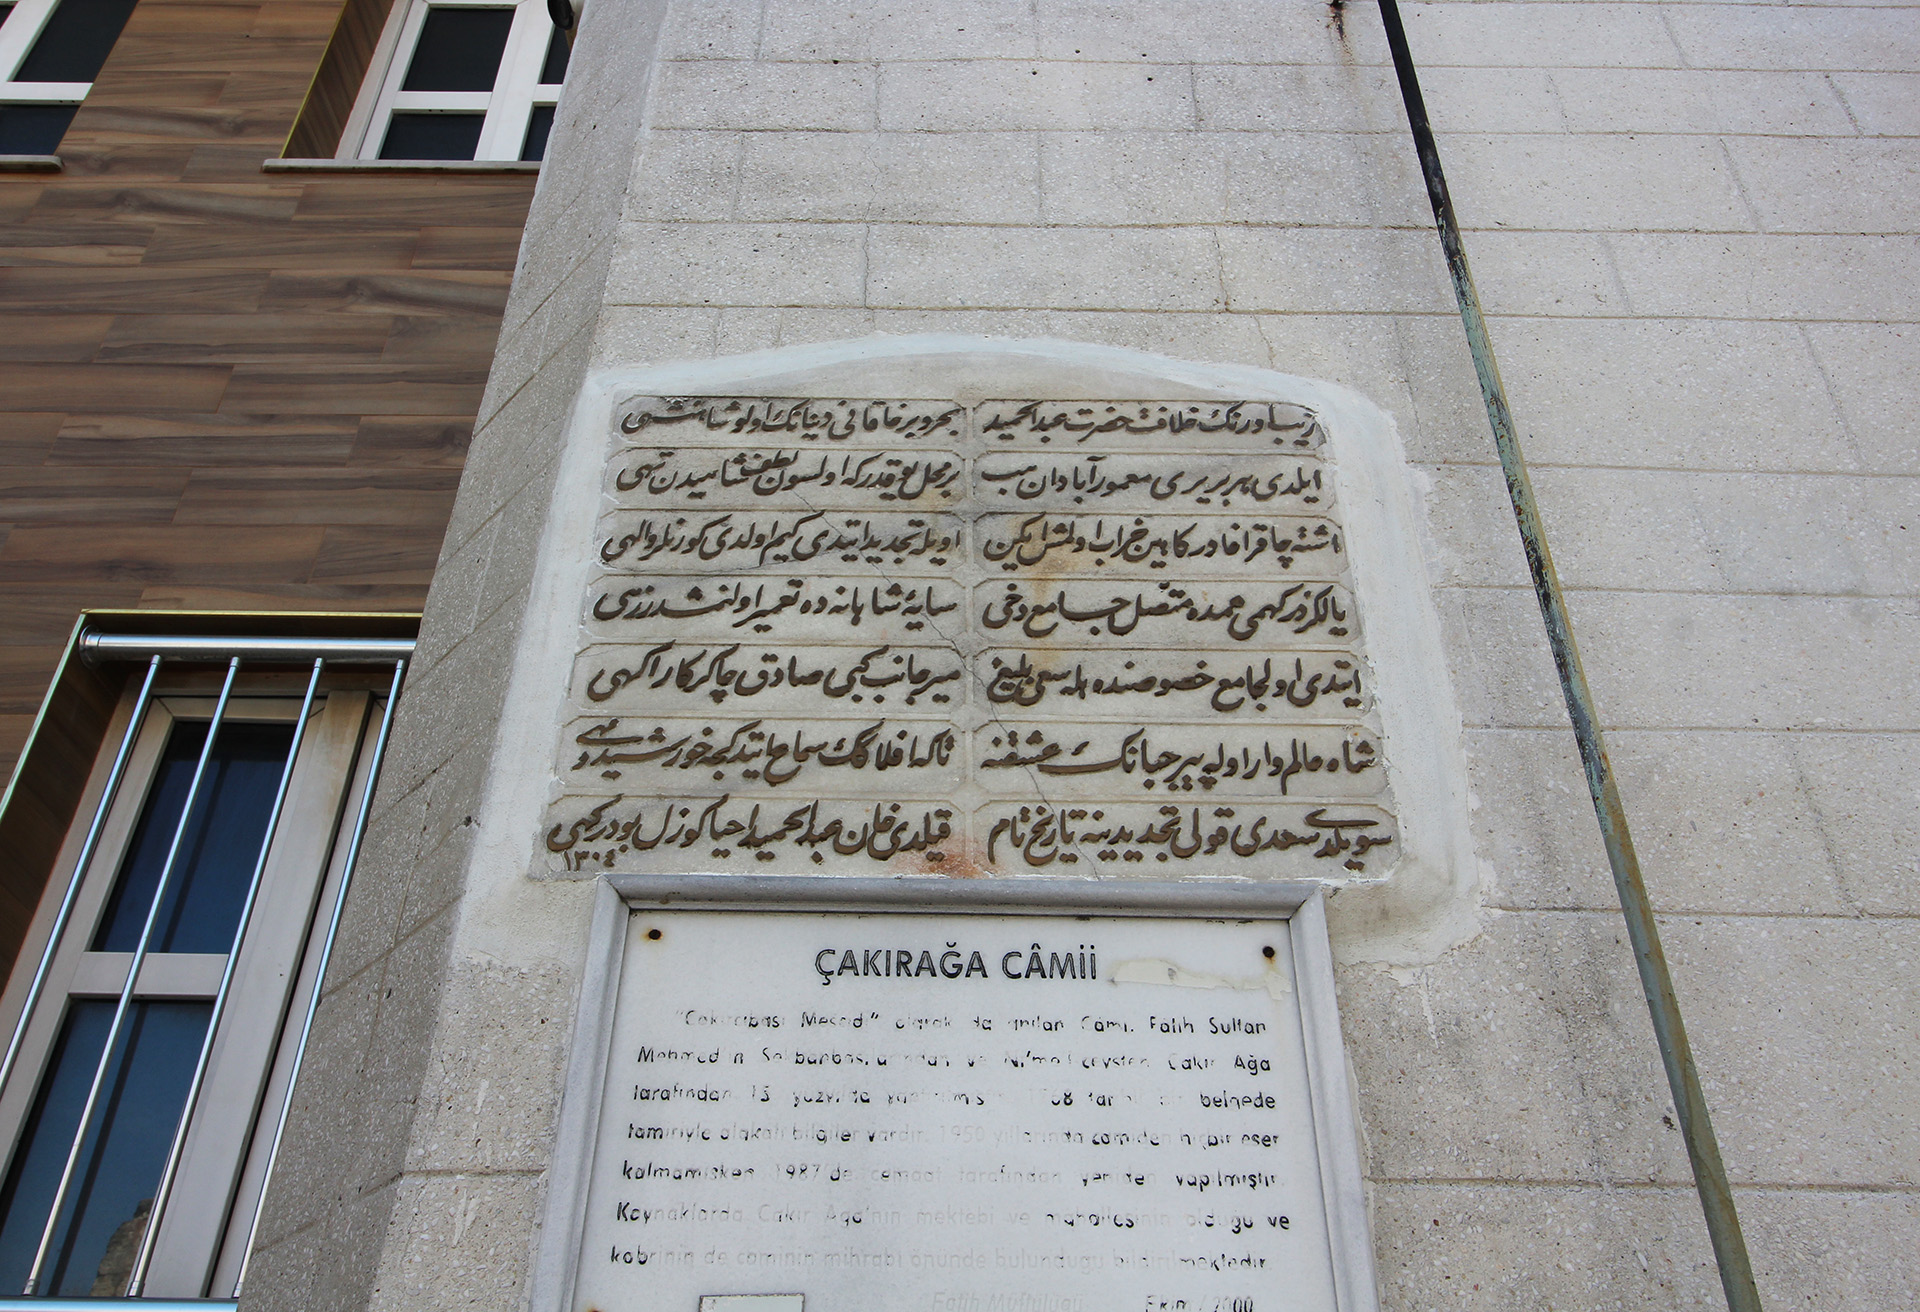 زیب اورنك خلافت حضرت عبدالحمید
بحر و بر خاقانی دنیانك اولو شاهنشهی
ایلدی هر بر یری معمور آبادان هپ
بر محل یوقدر كه اولسون لطف شاهیدن تهی
اشته چاقر اغا دركاهین خراب اولمش ایكن
اویله تجدید ایتدی كیم اولدی كوزلر والهی
یالكز دركهمی عمده متصل جامع دخی
سایهٔ شاهانه ده تعمیر اولنمشدر زهی
ایتدی اول جامع خصوصنده هله سعی بلیغ
میر جانب كبی صادق چاكر كار اكهی
شاه عالم وار اوله پیر جهانك عشقنه
تا كه افلاكك سماع ایتدكجه خورشید و مهی
سویلدی سعدی قولی تجدیدینه تاریخ تام
قیلدی خان عبدالحمید احیا كوزل بو دركهی
١٣٠٤
ÇAKIRAĞA CÂMİİ
olarak da anılan Câmi, Fatih Sultan
Mehmed'in ve Çakır Ağa
tarafından 15 yüzyılda belgede
tamiriyle alakalı bilgiler vardır. 1950 yıllarında camiden hiçbir eser
kalmamışken 1987'de cemaat tarafından yeniden yapılmıştır.
Kaynaklarda Çakır Ağa'nın mektebi ve mahallesinin olduğu ve
kabrinin de caminin mihrabı önünde bulunduğu bildirilmektedir.
Fatih Müftülüğü Ekim / 2000